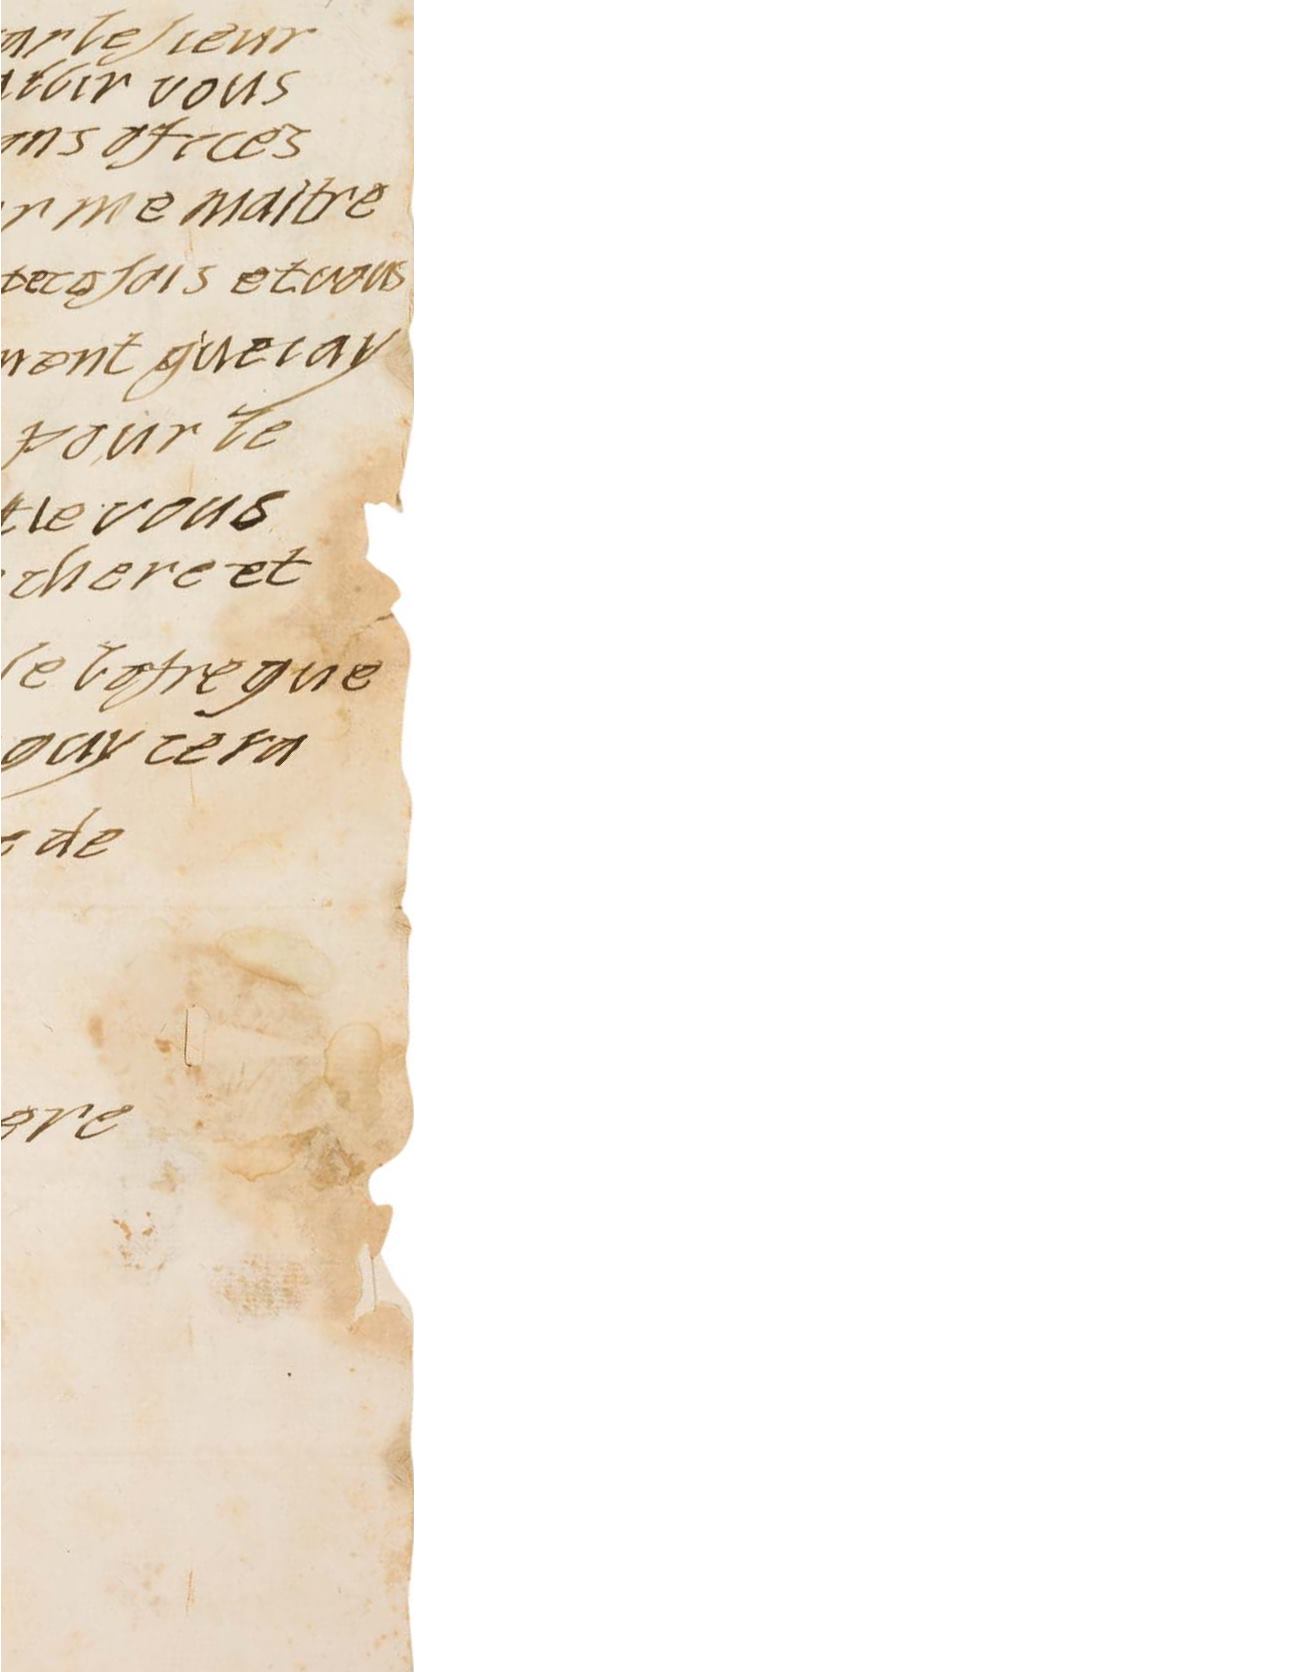 arle sieur
avoir vous
ons ofices
r me maitre
fois et vous
ment que iay
pour le
et le vous
chere et
le cofre que
quy cera
de
ere